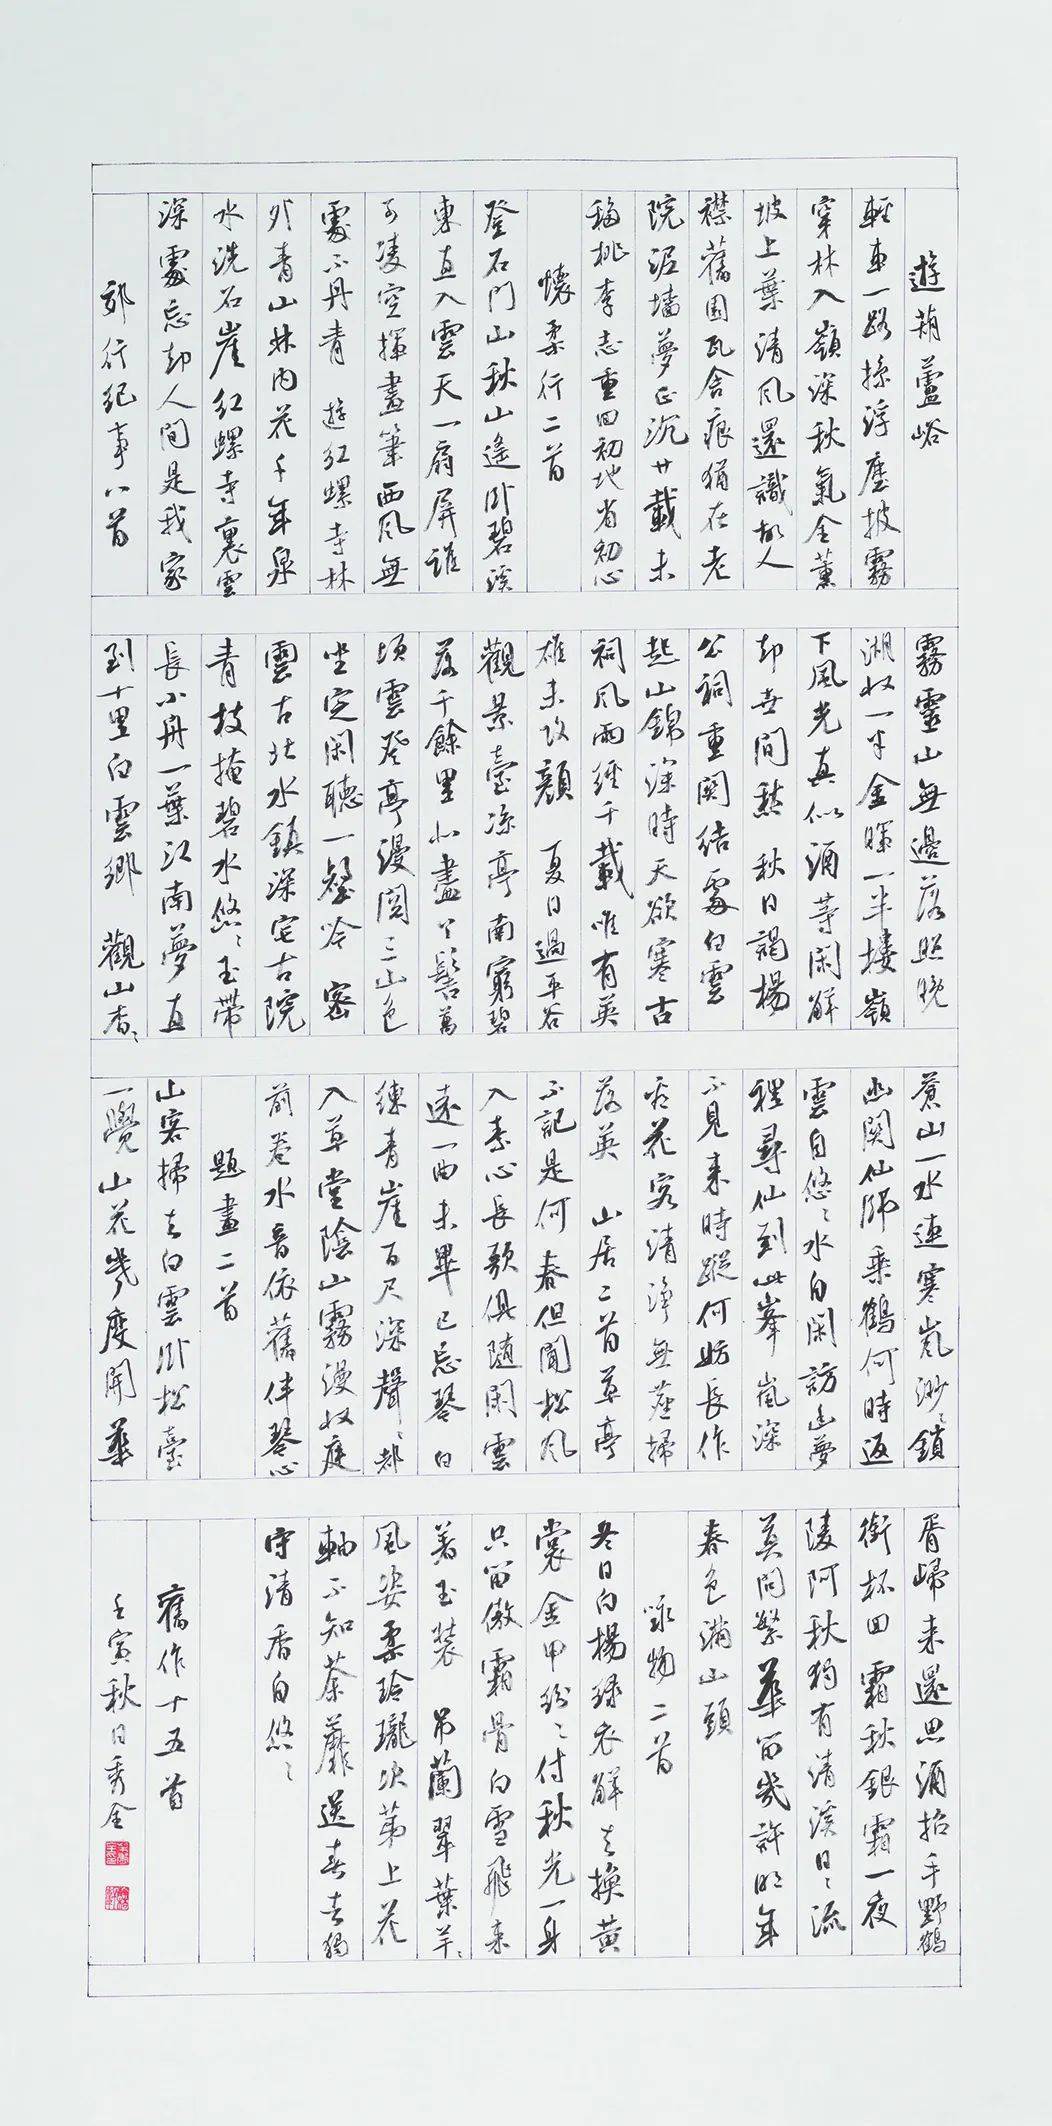 遊葫蘆峪
輕車一路掠浮塵披霧
穿林入嶺深秋氣金薰
坡上葉清風還識故人
襟舊園瓦舍痕猶在老
院泥墻夢正沉廿載未
穐桃李志重回初地省初心
懷柔行二首
登石門山秋山遙卧碧溪
東直入雲天一扇屏誰
可凌空揮畫筆西風無
處不丹青 遊紅螺寺林
外青山林內花千年泉
水洗石崖紅螺寺裏雲
深處忘却人間是我家
郊行紀事八首
霧靈山無邊落照晚
湖收一半金暉一半摟嶺
下風光真似酒等閑解
却世間愁 秋日謁楊
公祠重關結處白雲
起山錦深時天欲寒古
祠風雨經千載唯有英
雄未改顏 夏日過平谷
觀景臺涼亭南窮碧
落千餘里北盡丫髻萬
頃雲登亭漫閱三山色
坐定閑聽一磬吟 密
雲古北水鎮深宅古院
青枝掩碧水悠〻玉帶
長小舟一葉江南夢直
到十里白雲鄉 觀山杳〻
蒼山一水連寒嵐渺〻鎖
幽關仙師乘鶴何時返
雲自悠〻水自閑訪幽夢
裡尋仙到此峯嵐深
不見來時蹤何妨長作
看花客清淨無塵掃
落英 山居二首草亭
不記是何春但聞松風
入素心長歌俱隨閑雲
遠一曲未畢已忘琴 白
練青崖百尺深聲〻都
入草堂陰山霧漫收庭
前卷水音依舊伴琴心
題畫二首
山客掃去白雲卧松臺
一覺山花幾度開華
胥歸來還思酒招手野鶴
銜杯回 霜秋銀霜一夜
陵阿秋獨有清溪日〻流
莫問繁華留幾許明年
春色滿山頭
咏物二首
冬日白楊綠衣解去換黃
裳金甲紛〻付秋光一身
只留傲霜骨白雪飛來
著玉裝 吊蘭翠葉羊〻
風姿柔玲瓏次第上花
軸不知荼蘼送春去獨
守清香自悠〻
舊作十五首
壬寅秋日秀全